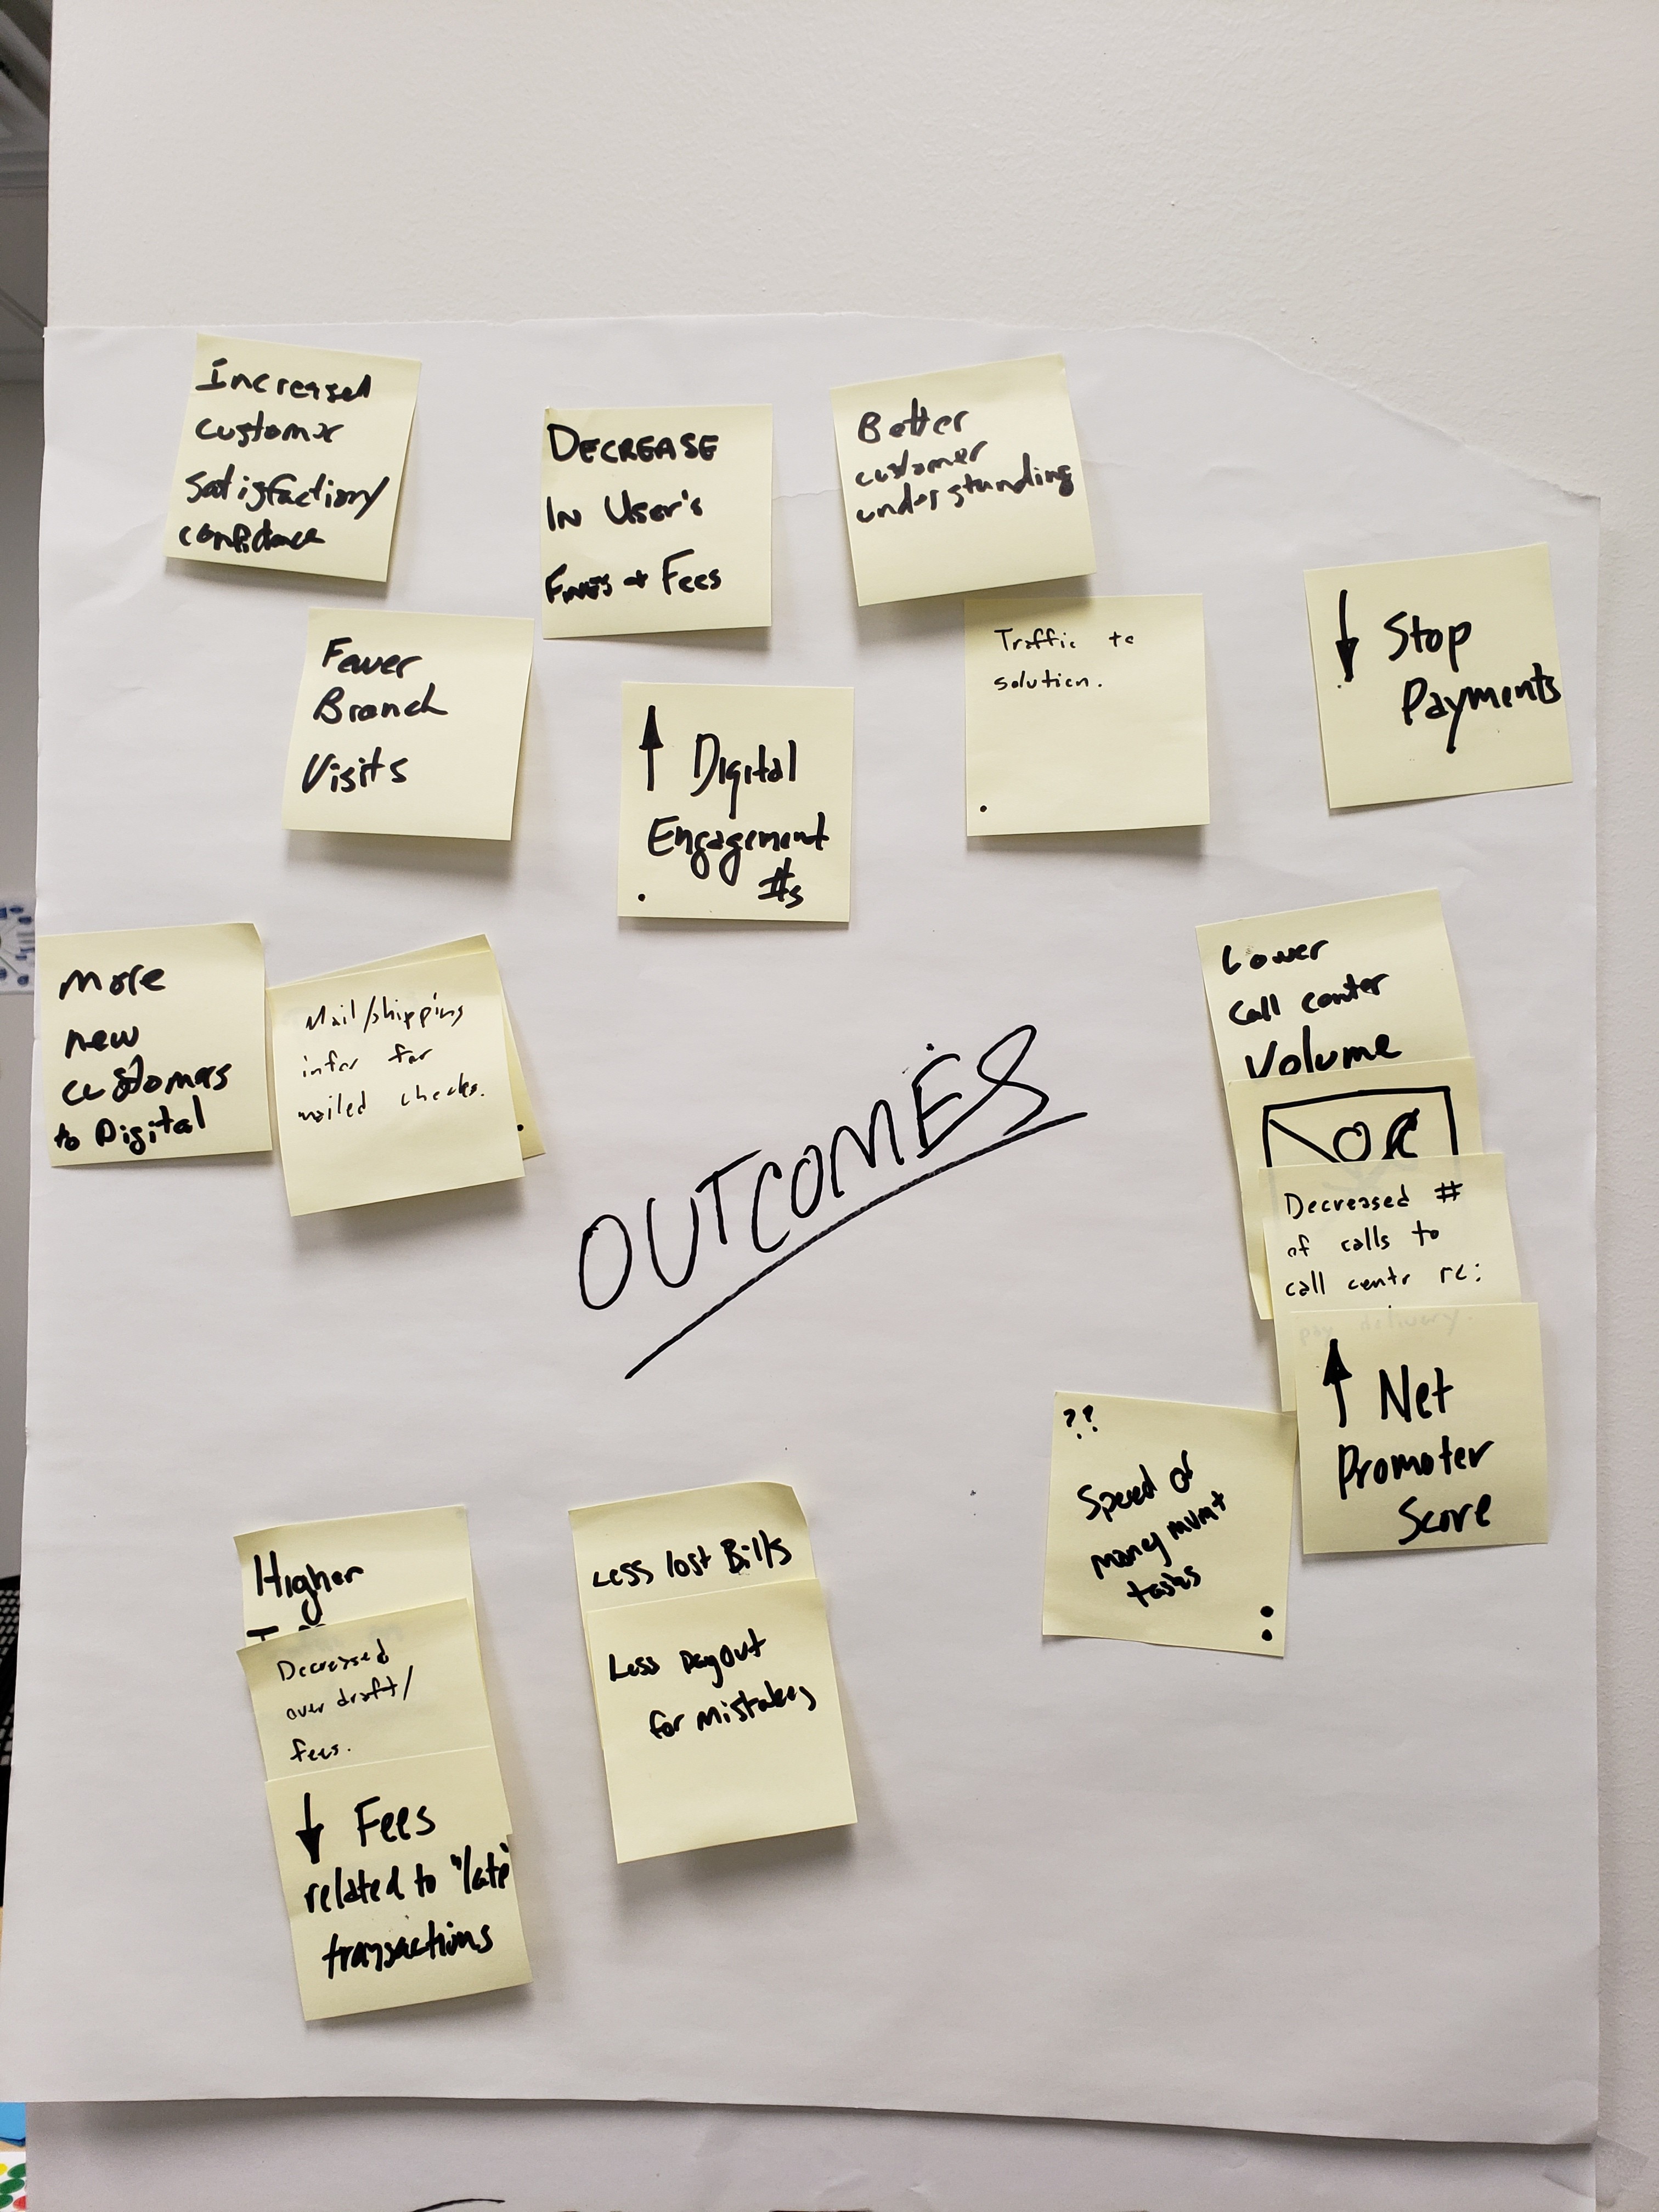 Increased
customer
satisfaction/
confidence
DECREASE
IN USER'S
FINES + FEES
Better
customer
understanding
Fewer
Branch
Visits
↑ Digital
Engagement
#s
Traffic to
solution.
↓ Stop
Payments
More
new
customers
to Digital
Mail/shipping
infor for
mailed checks.
OUTCOMES
Lower
call center
Volume
Decreased #
of calls to
call centr re:
pay delivery.
↑ Net
Promoter
Score
??
Speed of
money mvmt
tasks
Higher
Decreased
over draft/
fees.
↓ Fees
related to "late"
transactions
Less lost Bills
Less payout
for mistakes